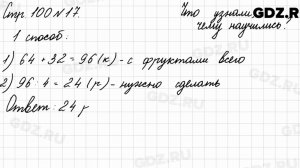 Стр. 100 № 17.
Что узнали,
чему научились?
GDZ.RU
1 способ.
1) 64 + 32 = 96 (к) - с фруктами всего
2) 96 : 4 = 24 (р) - нужно сделать
Ответ: 24 р